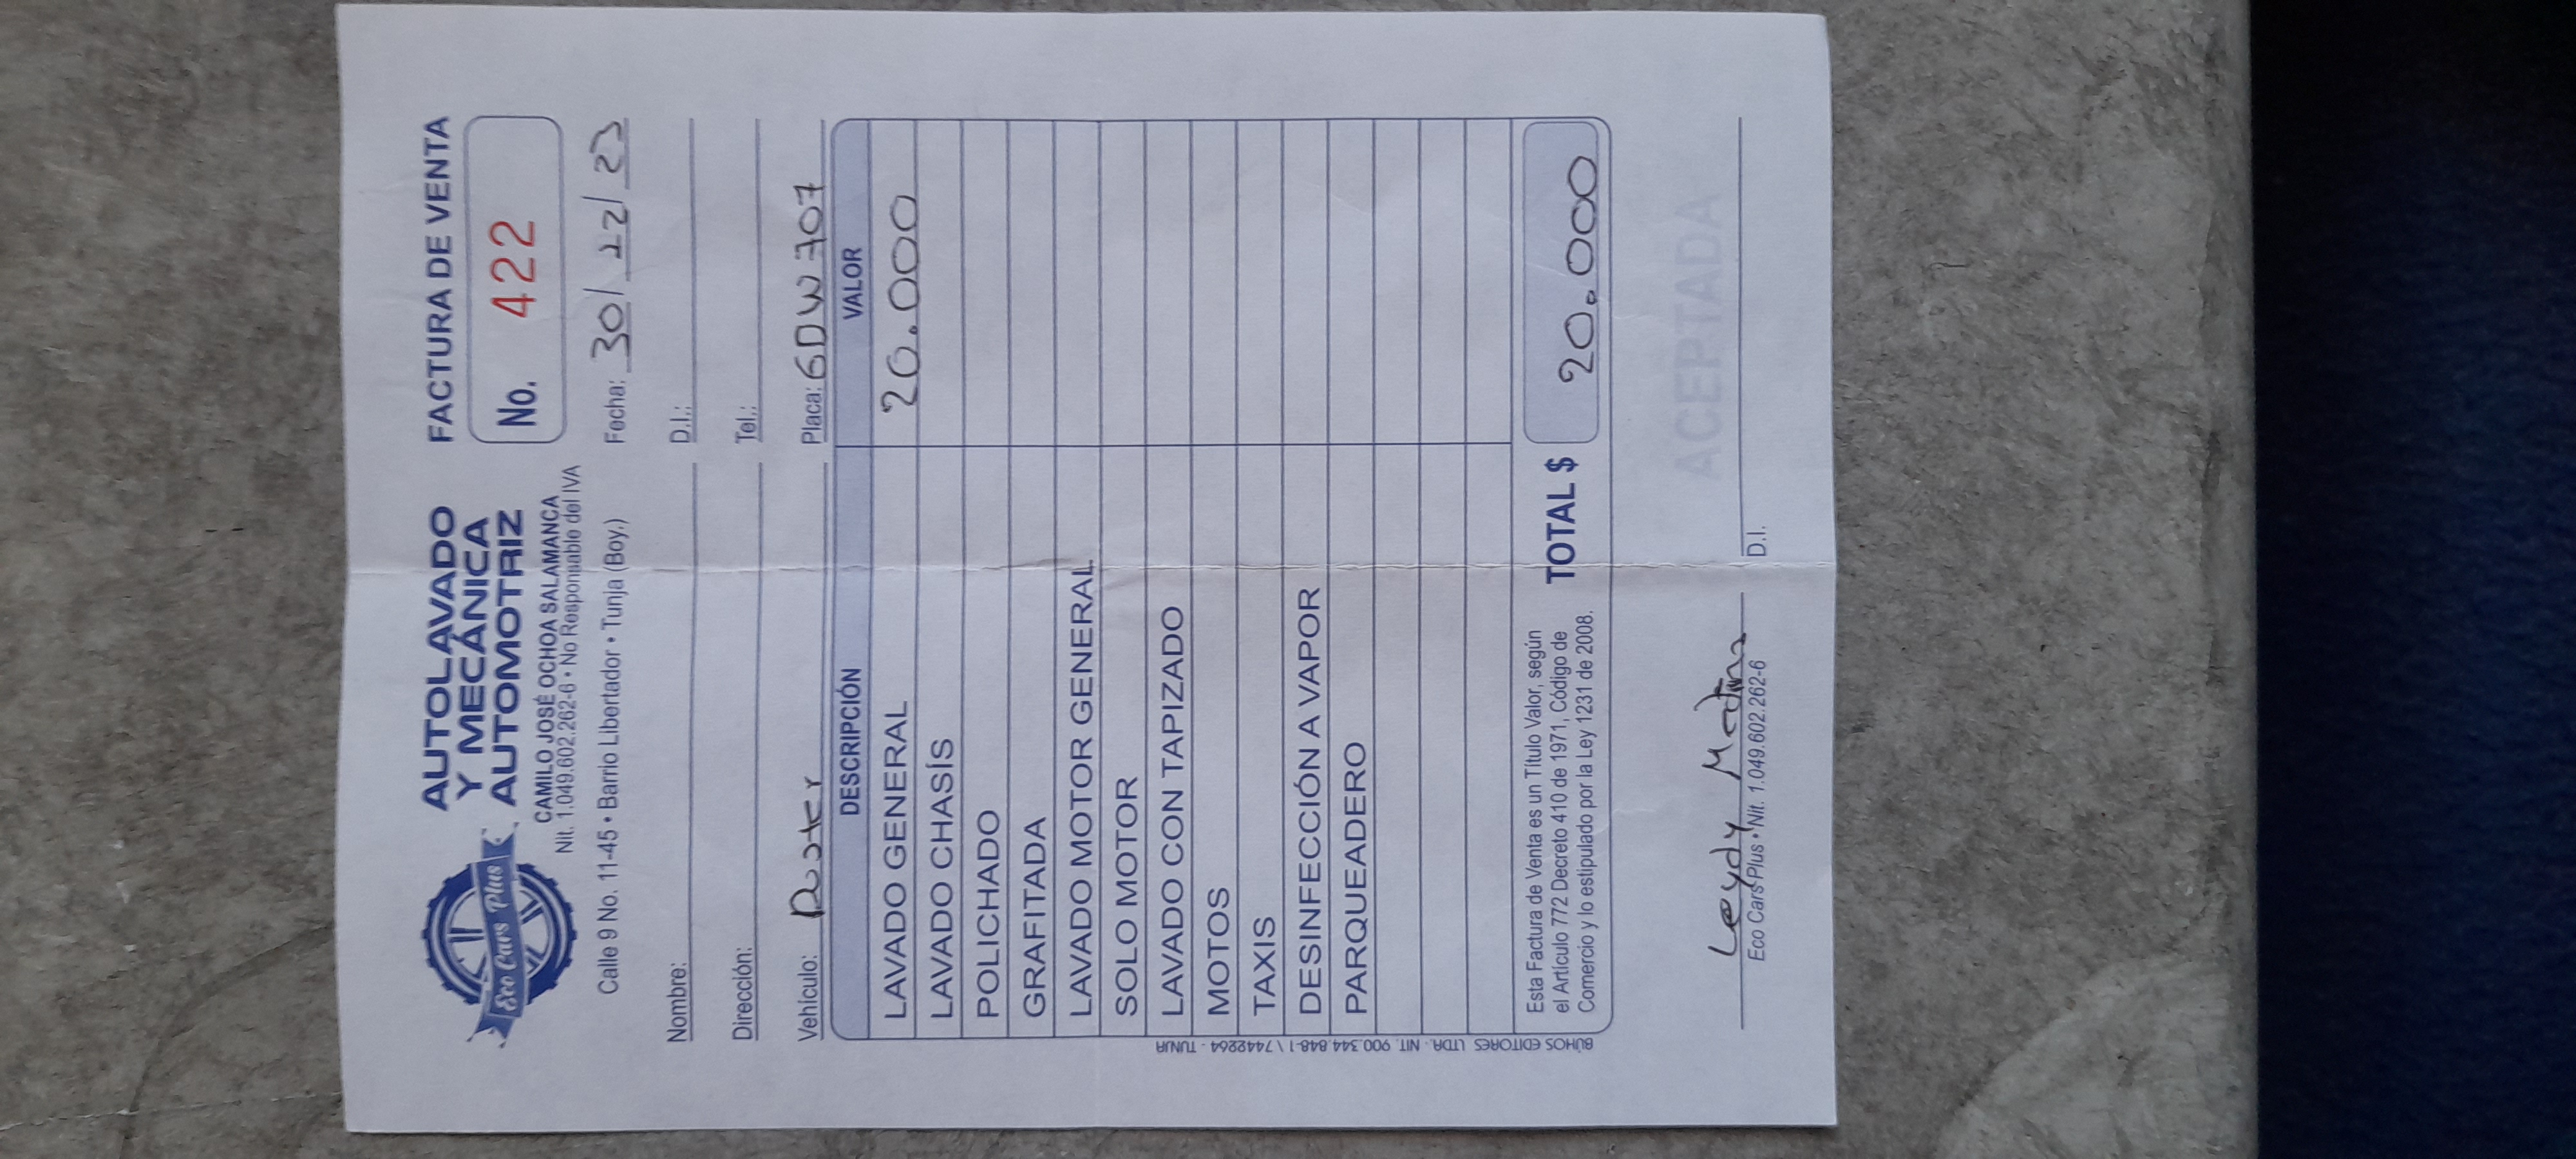 Eco Cars Plus
AUTOLAVADO
Y MECÁNICA
AUTOMOTRIZ
CAMILO JOSÉ OCHOA SALAMANCA
Nit. 1.049.602.262-6 • No Responsable del IVA
Calle 9 No. 11-45 • Barrio Libertador • Tunja (Boy.)
FACTURA DE VENTA
No. 422
Fecha: 30/ 22/ 23
Nombre: D.I.:
Dirección: Tel.:
Vehículo: Duster Placa: GDW 707
DESCRIPCIÓN VALOR
LAVADO GENERAL 20.000
LAVADO CHASÍS
POLICHADO
GRAFITADA
LAVADO MOTOR GENERAL
SOLO MOTOR
LAVADO CON TAPIZADO
MOTOS
TAXIS
DESINFECCIÓN A VAPOR
PARQUEADERO
Esta Factura de Venta es un Título Valor, según
el Artículo 772 Decreto 410 de 1971, Código de
Comercio y lo estipulado por la Ley 1231 de 2008.
TOTAL $ 20.000
ACEPTADA
Leydy Medina
Eco Cars Plus • Nit. 1.049.602.262-6
D.I.
BÚHOS EDITORES LTDA. · NIT. 900.344.848-1 \ 7442264 - TUNJA